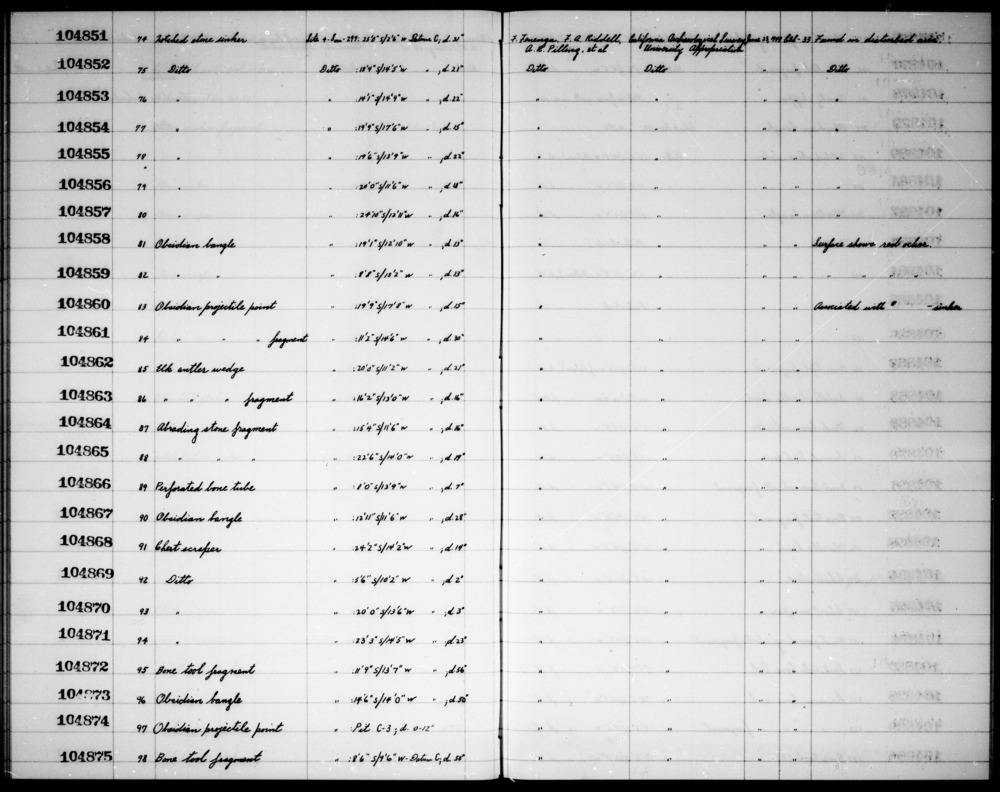 104851 74 Notched stone sinker Site 4-Son-299: 25'8" S/5'6" W Datum C, d. 31" F. Fenenga, F. A. Riddell, California Archaeological Survey June 23, 1949 Oct-33 Found in disturbed area.
A. R. Pilling, et al University Appropriation
104852 75 Ditto Ditto :18'9" S/14'5" W " ; d. 21" Ditto Ditto " " Ditto
104853 76 " " :19'1" S/14'9" W " ; d. 22" " " " " "
104854 77 " " :19'9" S/17'6" W " ; d. 15" " " " " "
104855 78 " " :19'6" S/13'9" W " ; d. 22" " " " " "
104856 79 " " :20'0" S/11'6" W " ; d. 18" " " " " "
104857 80 " " :24'10" S/12'11" W " ; d. 16" " " " " "
104858 81 Obsidian bangle " :19'1" S/12'10" W " ; d. 13" " " " " Surface shows red ocher.
104859 82 " " " ; d. 13" " " " " " " "
104860 83 Obsidian projectile point " :19'9" S/17'8" W " ; d. 15" " " " " Associated with # - sinker
104861 84 " " " fragment " :11'2" S/14'6" W " ; d. 30" " " " "
104862 85 Elk antler wedge " :20'0" S/11'2" W " ; d. 21" " " " "
104863 86 " " " fragment " :16'2" S/13'0" W " ; d. 16" " " " "
104864 87 Abrading stone fragment " :15'4" S/11'6" W " ; d. 16" " " " "
104865 88 " " " " :22'6" S/14'0" W " ; d. 19" " " " "
104866 89 Perforated bone tube " :8'0" S/13'9" W " ; d. 7" " " " "
104867 90 Obsidian bangle " :12'11" S/11'6" W " ; d. 28" " " " "
104868 91 Chert scraper " :24'2" S/14'2" W " ; d. 19" " " " "
104869 92 Ditto " :5'6" S/10'2" W " ; d. 2" " " " "
104870 93 " " :20'0" S/13'6" W " ; d. 3" " " " "
104871 94 " " :23'3" S/14'5" W " ; d. 23" " " " "
104872 95 Bone tool fragment " :11'9" S/13'7" W " ; d. 56" " " " "
104873 96 Obsidian bangle " :14'6" S/14'0" W " , d. 50" " " " "
104874 97 Obsidian projectile point " :Pit C-3; d. 0-12" " " " "
104875 98 Bone tool fragment " :8'6" S/9'6" W - Datum C; d. 58" " " " "